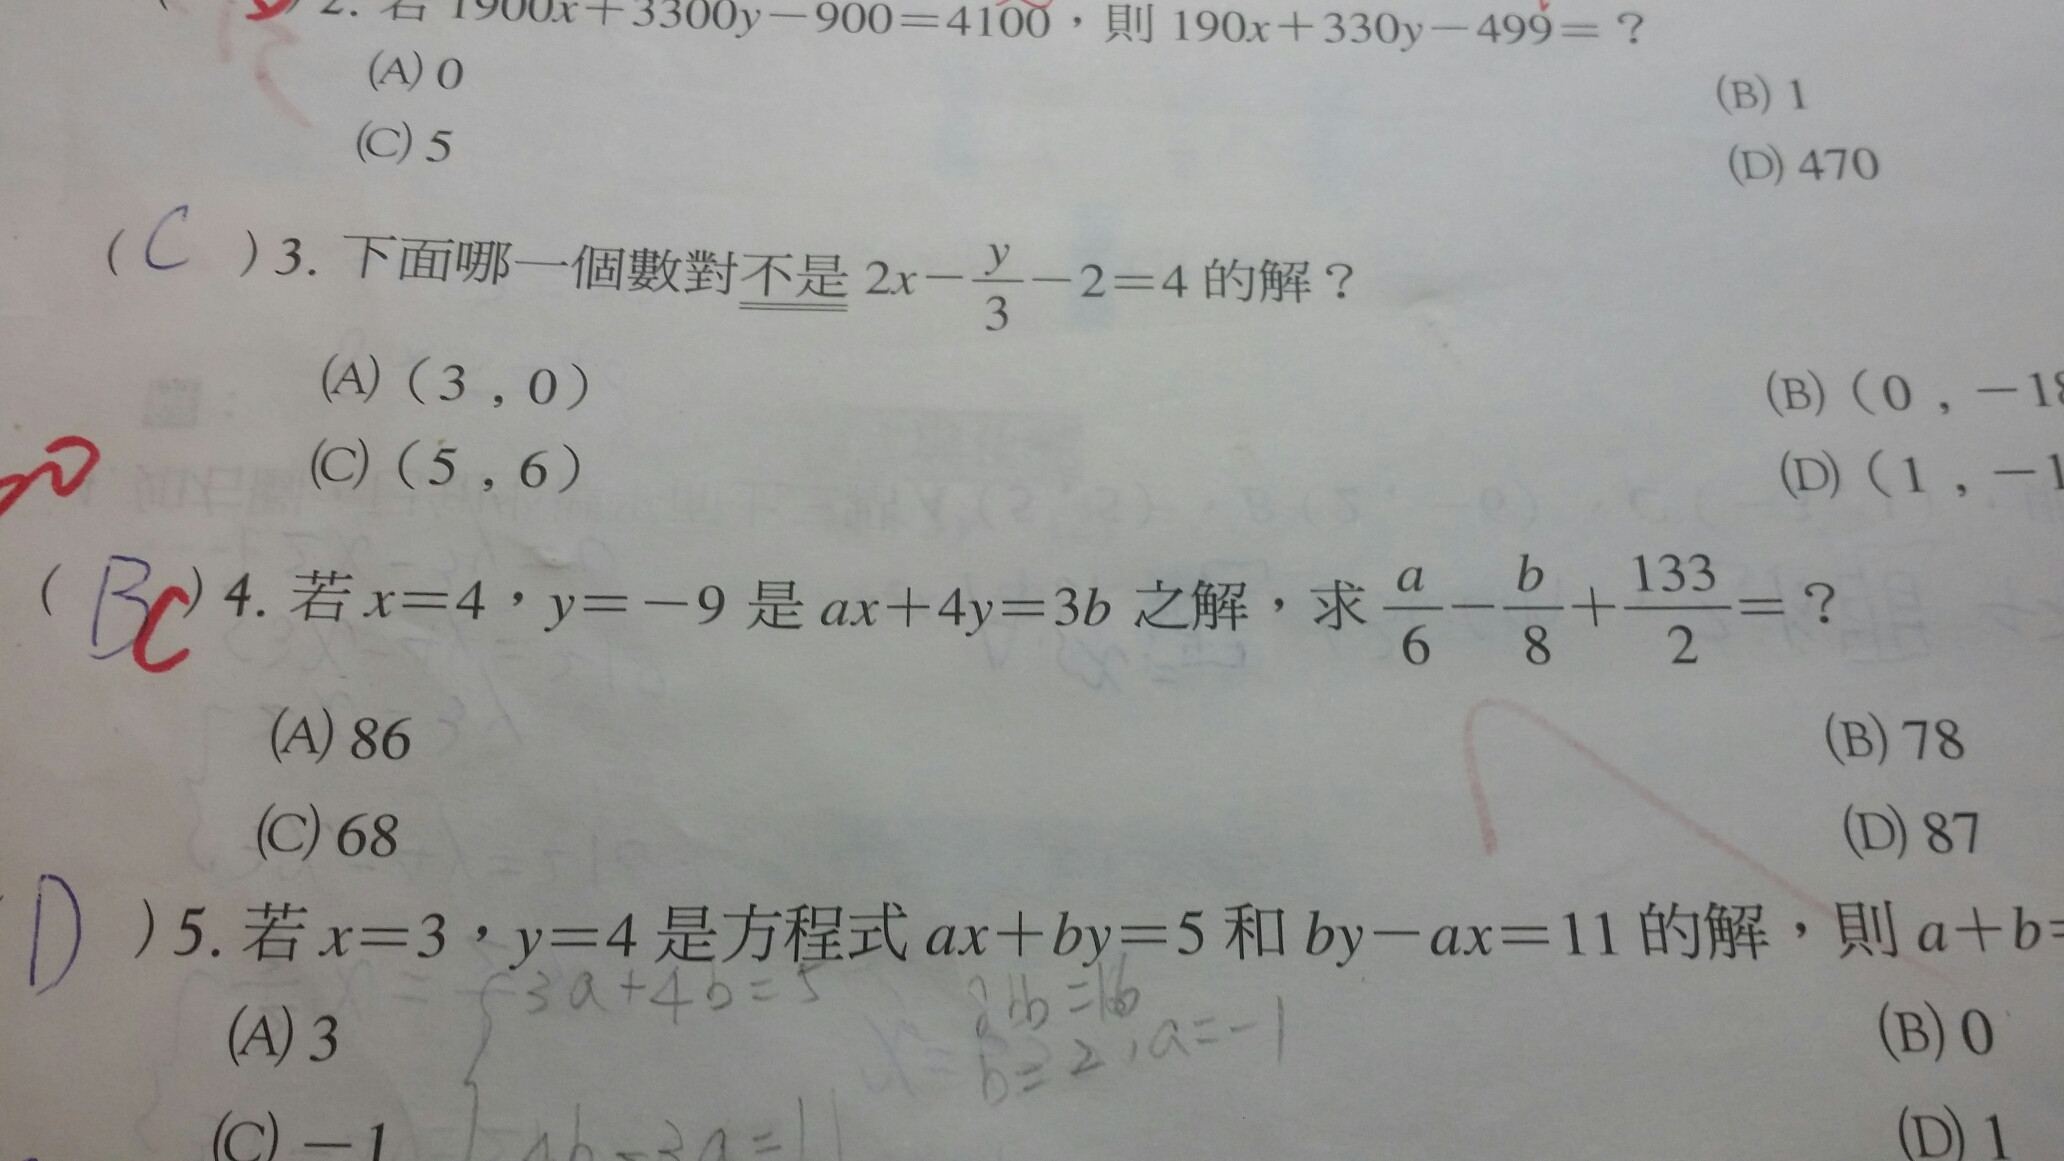 2. 若 1900x+3300y−900=4100，則 190x+330y−499=？
(A) 0 (B) 1
(C) 5 (D) 470
( C ) 3. 下面哪一個數對不是 2x−y/3−2=4 的解？
(A)（3 , 0） (B)（0 , −18
(C)（5 , 6） (D)（1 , −1
( B C ) 4. 若 x=4，y=−9 是 ax+4y=3b 之解，求 a/6−b/8+133/2=？
(A) 86 (B) 78
(C) 68 (D) 87
D ) 5. 若 x=3，y=4 是方程式 ax+by=5 和 by−ax=11 的解，則 a+b=
3a+4b=5 =16
(A) 3 b=2 , a=−1 (B) 0
(C) −1 4b−3a=11 (D) 1